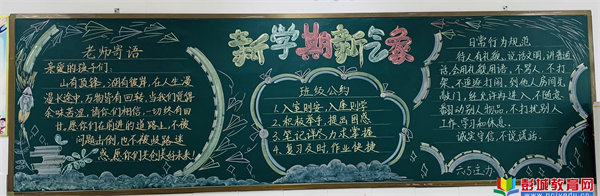 新学期新气象
老师寄语
亲爱的孩子们:
山有顶峰,湖有彼岸,在人生漫
漫长途中,万物皆有回转,当我们觉得
余味苦涩,请你们相信,一切终有回
甘,愿你们在前进的道路上,不被
问题击倒,也不被歧路迷
惑,愿你们去创造好未来!
班级公约
1.入室则安,入座则学
2.积极举手,提出困惑
3.笔记详尽,力求掌握
4.复习及时,作业快捷
日常行为规范
待人有礼貌,说话文明,讲普通
话,会用礼貌用语,不骂人,不打
架,不逗逗打闹,到他人房间先
敲门,经允许再进入,不随意
翻动别人物品,不打扰别人
工作、学习和休息。
诚实守信,不说谎话。
彭城教育网